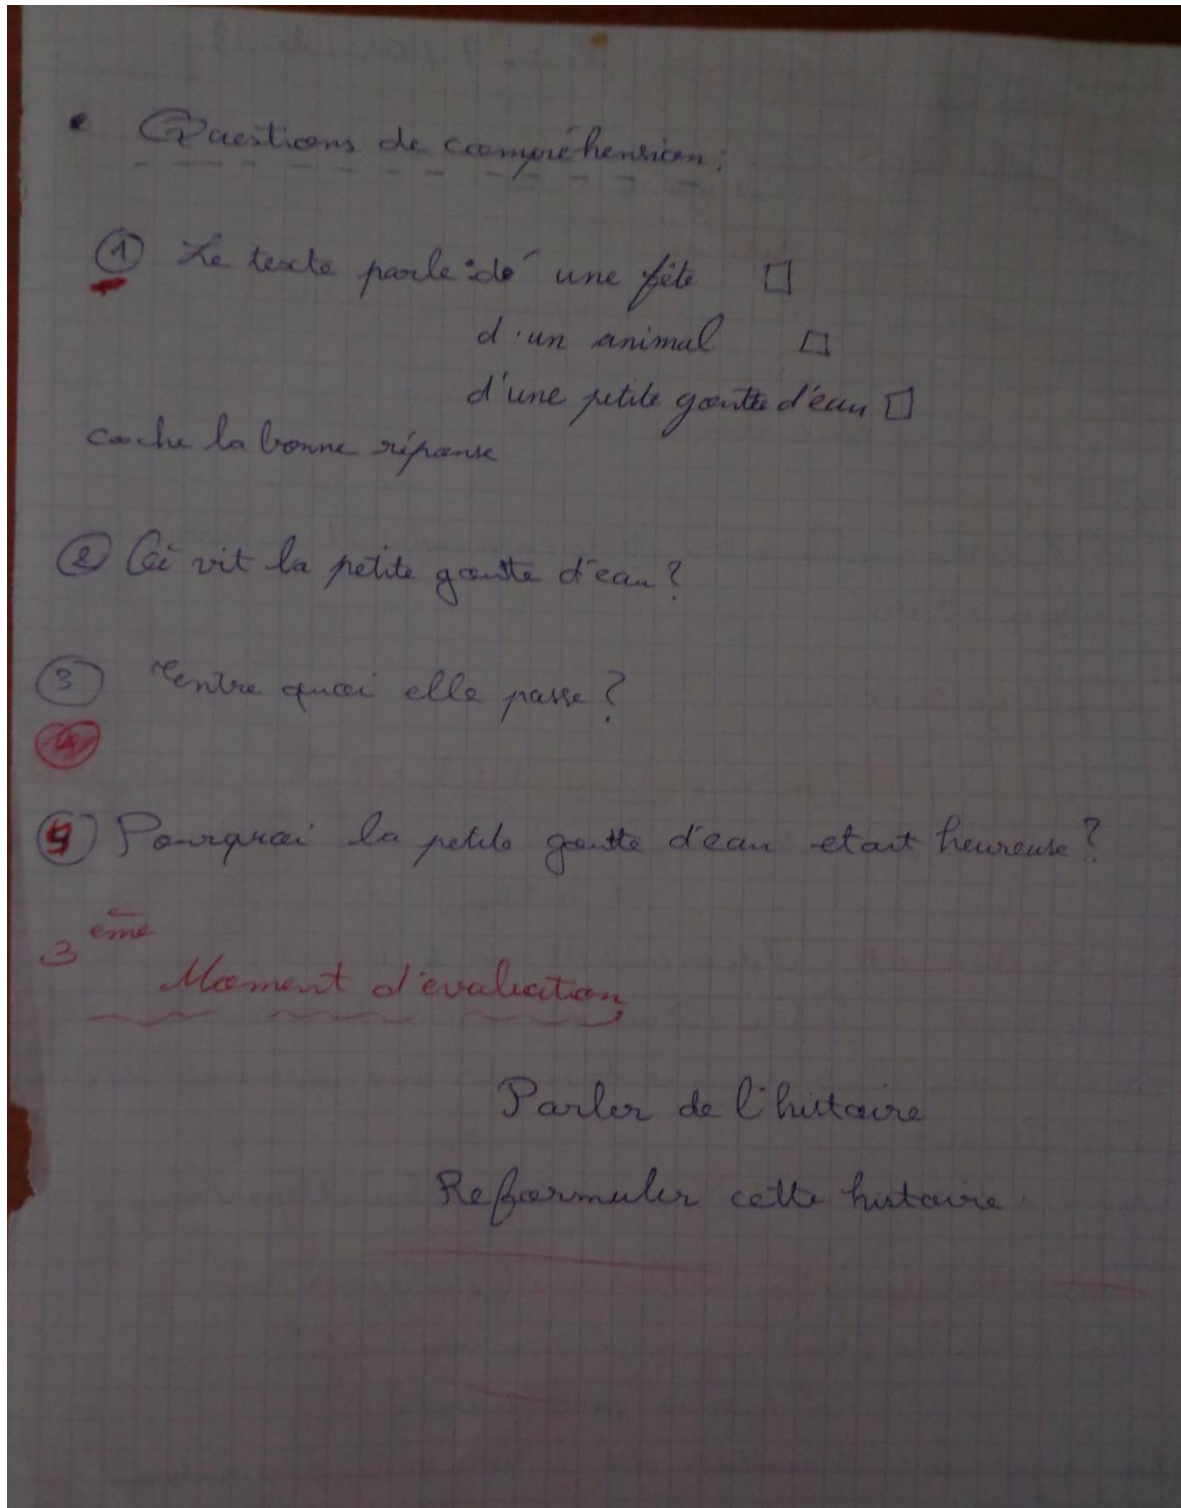 • Questions de compréhension:
① Le texte parle : de une fête □
d'un animal □
d'une petite goutte d'eau □
coche la bonne réponse
② Où vit la petite goutte d'eau ?
③ entre quoi elle passe ?
④ Pourquoi la petite goutte d'eau etait heureuse ?
3 ème
Moment d'évaluation
Parler de l'histoire
Reformuler cette histoire.